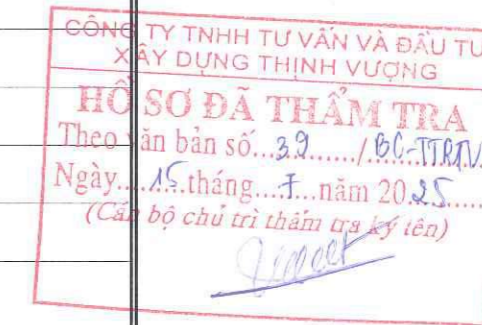 CÔNG TY TNHH TƯ VẤN VÀ ĐẦU TƯ
XÂY DỰNG THỊNH VƯỢNG
HỒ SƠ ĐÃ THẨM TRA
Theo văn bản số...39....../.BC-TTR.TV.
Ngày....15.tháng....7...năm 20.25......
(Cán bộ chủ trì thẩm tra ký tên)